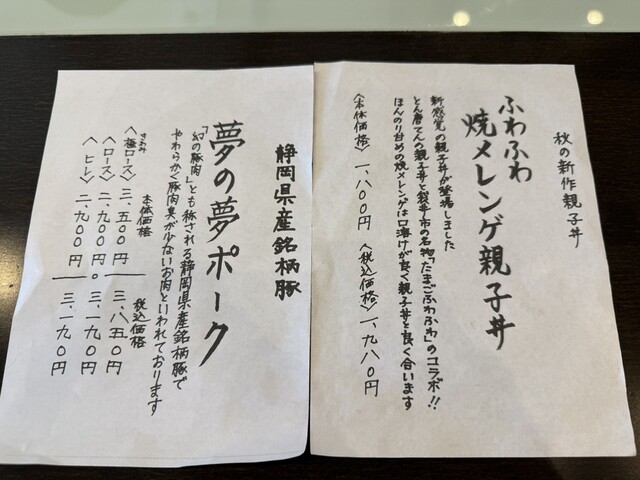 秋の新作親子丼
ふわふわ
焼メレンゲ親子丼
新感覚の親子丼が登場しました
とん唐てんの親子丼と袋井市の名物「たまごふわふわ」のコラボ!!
ほんのり甘めの焼メレンゲは口溶けが良く親子丼と良く合います
〈本体価格〉一、八〇〇円 〈税込価格〉一、九八〇円
静岡県産銘柄豚
夢の夢ポーク
「幻の豚肉」とも称される静岡県産銘柄豚で
やわらかく豚肉臭が少ないお肉といわれております
本体価格 税込価格
〈極ロース〉三、五〇〇円 三、八五〇円
〈ロース〉二、九〇〇円 三、一九〇円
〈ヒレ〉二、九〇〇円 三、一九〇円